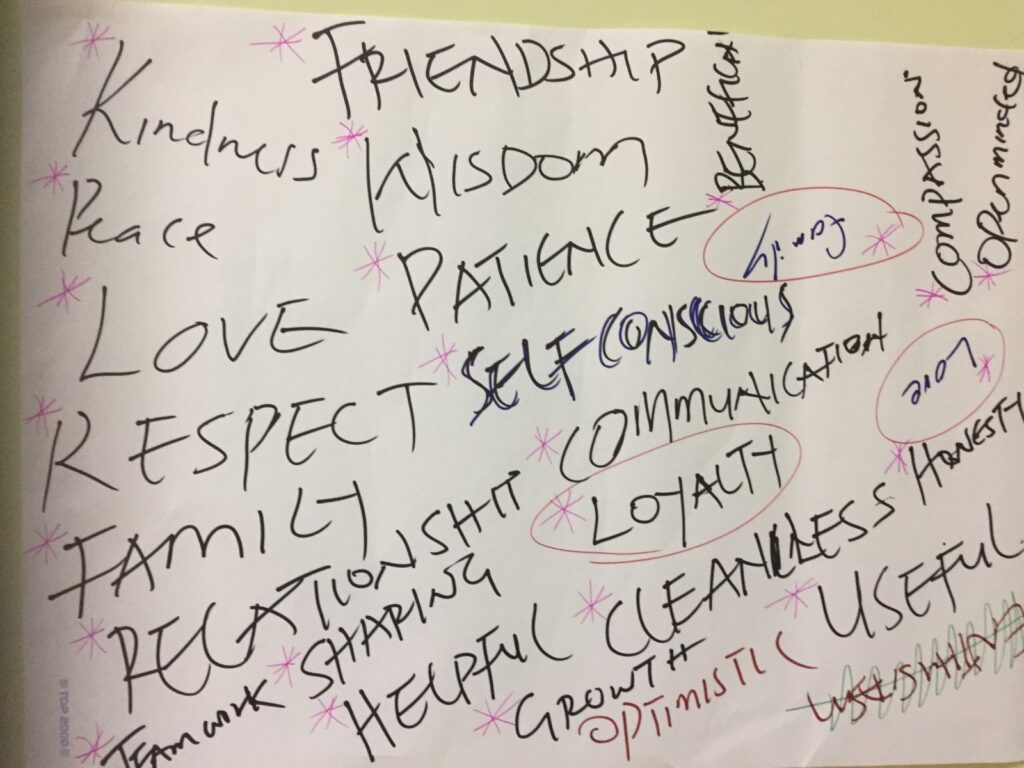 Kindness
Peace
LOVE
RESPECT
FAMILY
RELATIONSHIT
TEAMWORK
FRIENDSHIP
WISDOM
PATIENCE
SELF CONSCIOUS
COMMUNICATION
LOYALTY
SHARING
HELPFUL
CLEANLNESS
GROWTH
OPTIMISTIC
USEFUL
HONESTY
Love
Family
BENEFICAL
COMPASSION
OPENMINDED
TOP 2000